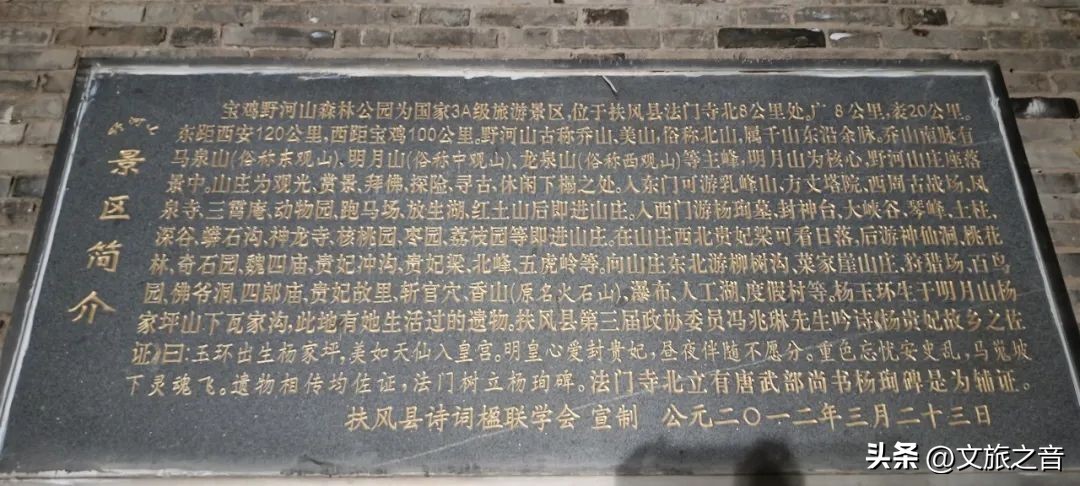 野河山
景区简介
宝鸡野河山森林公园为国家3A级旅游景区,位于扶风县法门寺北8公里处。广8公里,袤20公里。
东距西安120公里,西距宝鸡100公里。野河山古称乔山,美山,俗称北山,属千山东沿余脉。乔山南脉有
马泉山(俗称东观山)、明月山(俗称中观山)、龙泉山(俗称西观山)等主峰,明月山为核心,野河山庄座落
景中。山庄为观光、赏景、拜佛、探险、寻古、休闲下榻之处。入东门可游乳峰山、方丈塔院、西周古战场、凤
泉寺、三霄庵、动物园、跑马场、放生湖、红土山后即进山庄。入西门游杨珣墓、封神台、大峡谷、琴峰、土柱、
深谷、攀石沟、神龙寺、核桃园、枣园、荔枝园等即进山庄。在山庄西北贵妃梁可看日落,后游神仙洞、桃花
林、奇石园、魏四庙、贵妃冲沟、贵妃梁、北峰、五虎岭等。向山庄东北游柳树沟、菜家崖山庄、狩猎场、百鸟
园、佛爷洞、四郎庙、贵妃故里、斩官穴、香山(原名火石山)、瀑布、人工湖、度假村等。杨玉环生于明月山杨
家坪山下瓦家沟,此地有她生活过的遗物。扶风县第三届政协委员冯兆琳先生吟诗《杨贵妃故乡之佐
证》曰:玉环出生杨家坪,美如天仙入皇宫。明皇心爱封贵妃,昼夜伴随不愿分。重色忘忧安史乱,马嵬坡
下灵魂飞。遗物相传均佐证,法门树立杨珣碑。法门寺北立有唐武部尚书杨珣碑是为辅证。
扶风县诗词楹联学会 宣制 公元二〇一二年三月二十三日
头条 @文旅之音